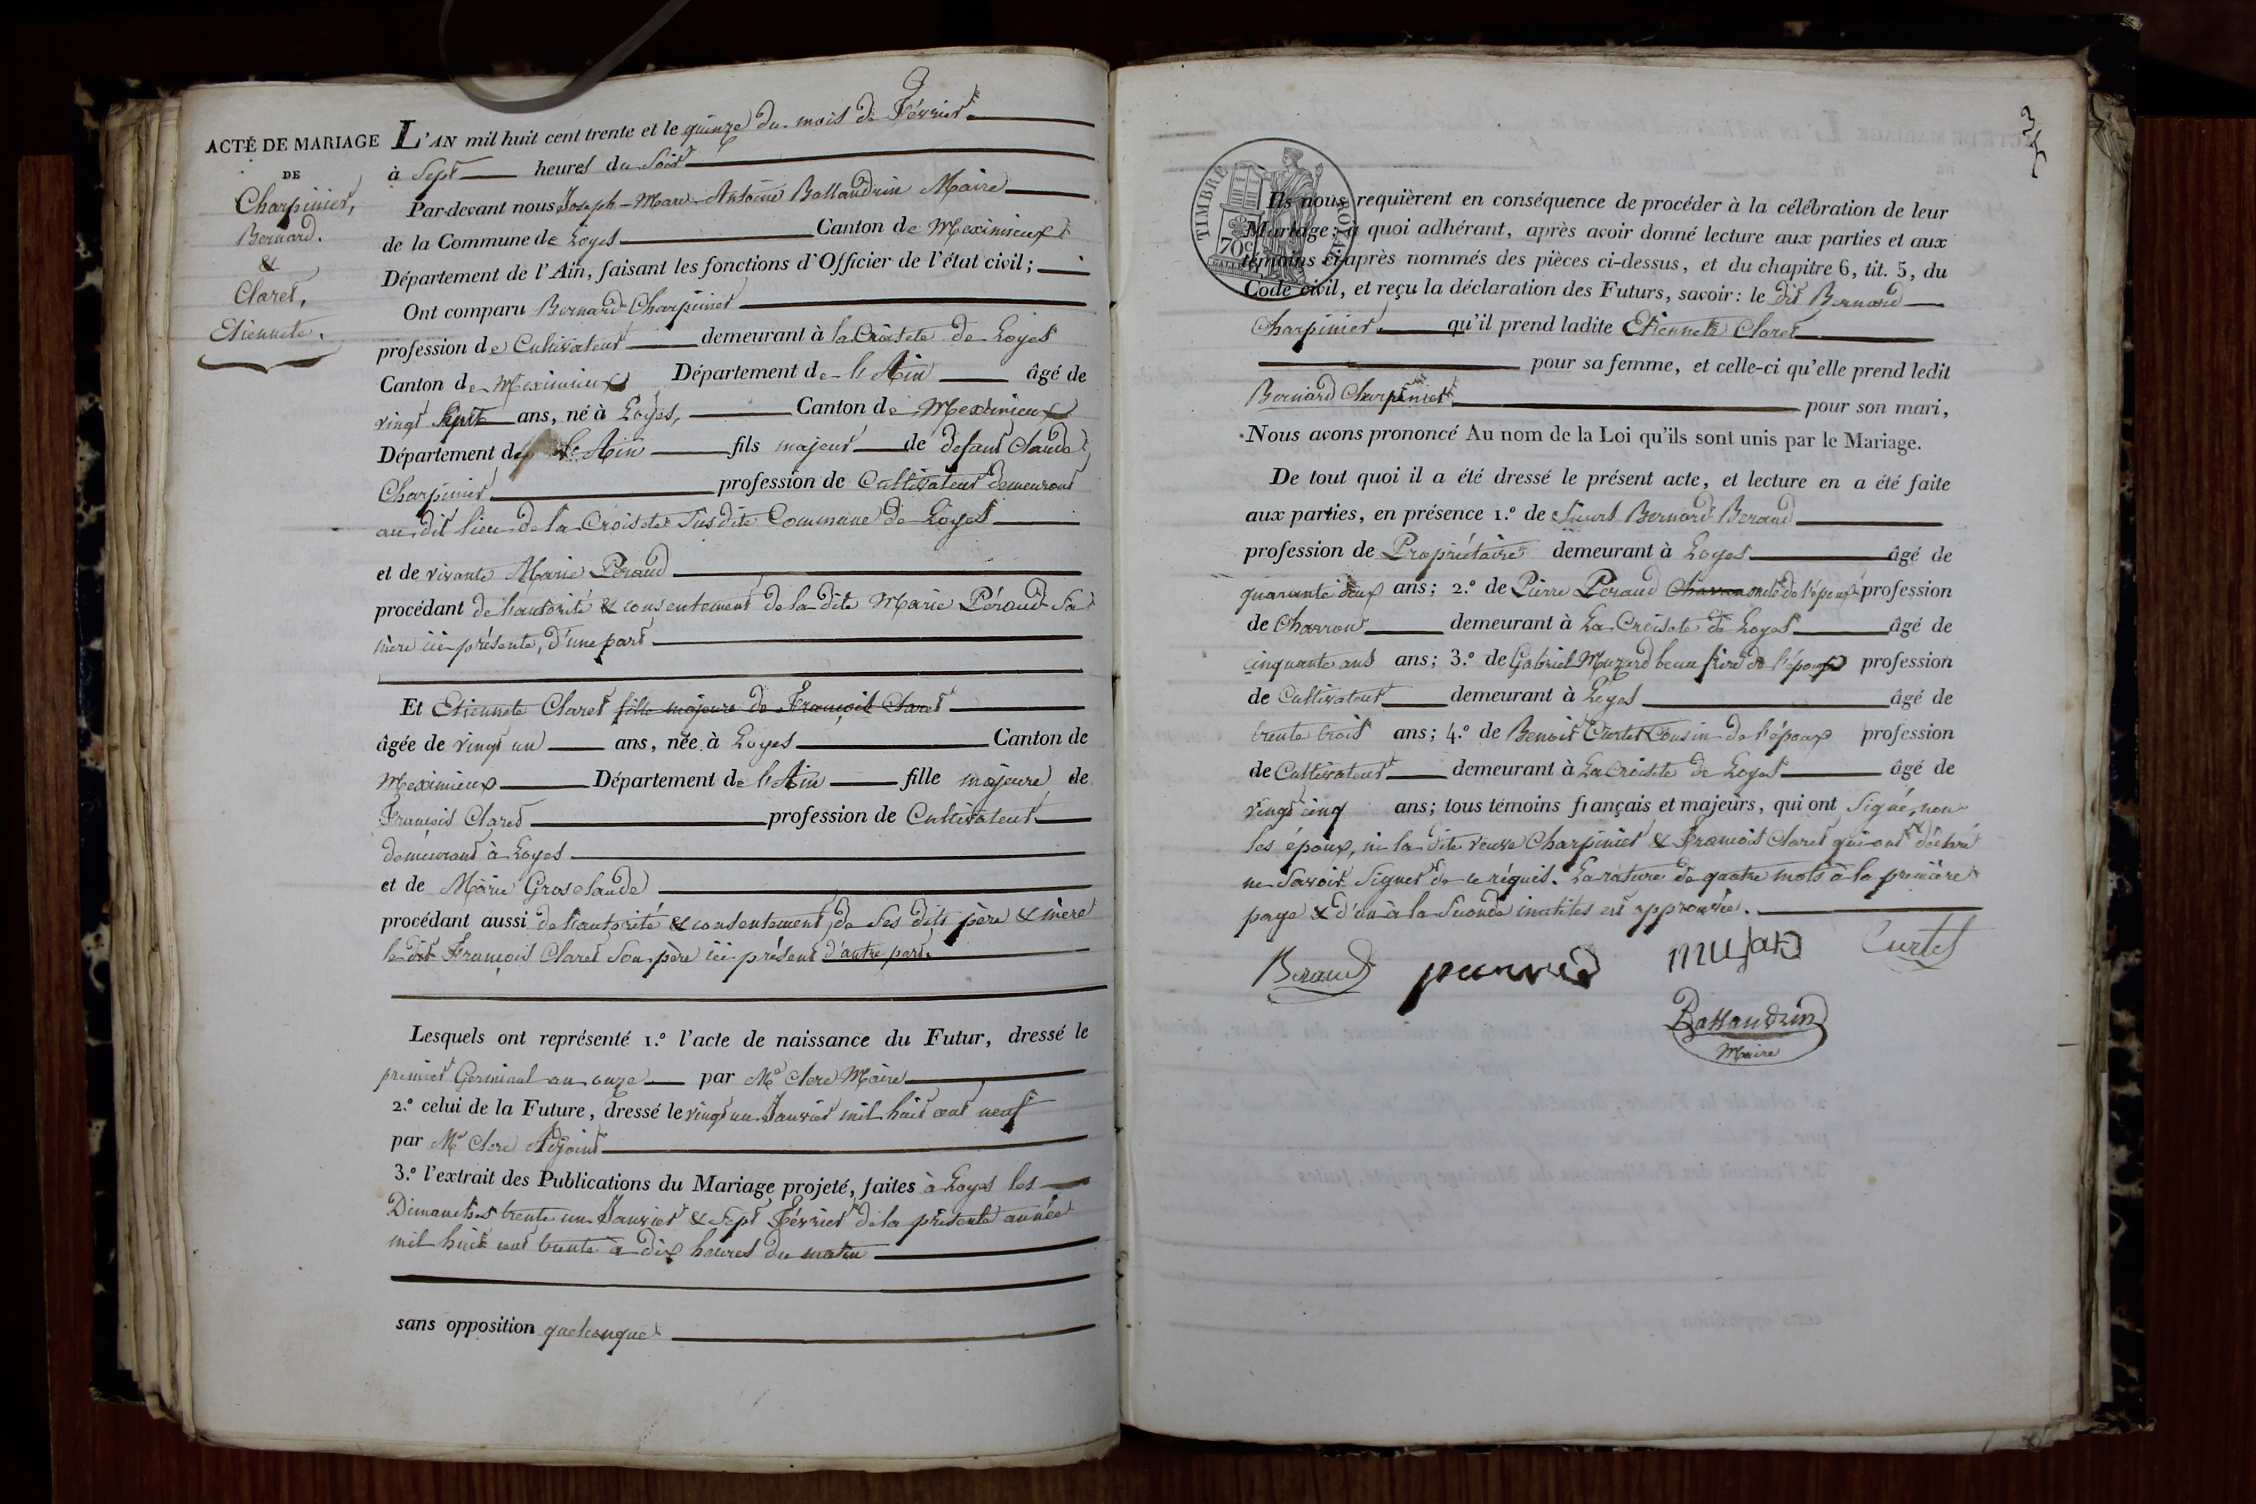 ACTE DE MARIAGE
DE
Charpinier,
Bernard.
&
Claret,
Etiennete.
L'AN mil huit cent trente et le quinze du mois de Février
à Sept heures du Soir
Par-devant nous Joseph-Marc-Antoine Ballandrin Maire
de la Commune de Loyes Canton de Meximieux
Département de l'Ain, faisant les fonctions d'Officier de l'état civil;
Ont comparu Bernard Charpinier
profession de Cultivateur demeurant à la Croisete de Loyes
Canton de Meximieux Département de l'Ain âgé de
vingt Sept ans, né à Loyes, Canton de Meximieux
Département de l'Ain fils majeur de défunt Claude
Charpinier profession de Cultivateur demeurant
au dit lieu de la Croisete Susdite Commune de Loyes
et de vivante Marie Péraud
procédant de l'autorité & consentement de la dite Marie Péraud Sa
mère ici présente, d'une part
Et Etiennete Claret fille majeure de François Claret
âgée de vingt un ans, née à Loyes Canton de
Meximieux Département de l'Ain fille majeure de
François Claret profession de Cultivateur
demeurant à Loyes
et de Marie Grosclaude
procédant aussi de l'autorité & consentement de Ses dits père & mère
le dit François Claret Son père ici présent d'autre part.
Lesquels ont représenté 1.° l'acte de naissance du Futur, dressé le
premier Germinal an onze par Mr Clerc Maire
2.° celui de la Future, dressé le vingt un Janvier mil huit cent neuf
par Mr Clerc Adjoint
3.° l'extrait des Publications du Mariage projeté, faites à Loyes les
Dimanches trente un Janvier & Sept Février de la présente année
mil huit cent trente à dix heures du matin
sans opposition quelconque
TIMBRE ROYAL
70c
Ils nous requièrent en conséquence de procéder à la célébration de leur
Mariage; à quoi adhérant, après avoir donné lecture aux parties et aux
témoins ci-après nommés des pièces ci-dessus, et du chapitre 6, tit. 5, du
Code civil, et reçu la déclaration des Futurs, savoir: le dit Bernard
Charpinier qu'il prend ladite Etiennete Claret
pour sa femme, et celle-ci qu'elle prend ledit
Bernard Charpinier pour son mari,
Nous avons prononcé Au nom de la Loi qu'ils sont unis par le Mariage.
De tout quoi il a été dressé le présent acte, et lecture en a été faite
aux parties, en présence 1.° de Sieurs Bernard Beraud
profession de Propriétaire demeurant à Loyes âgé de
quarante deux ans; 2.° de Pierre Peraud Charron oncle de l'époux profession
de Charron demeurant à La Croisete de Loyes âgé de
cinquante ans ans; 3.° de Gabriel Muzard beau frère de l'époux profession
de Cultivateur demeurant à Loyes âgé de
trente trois ans; 4.° de Benoit Curtet Cousin de l'époux profession
de Cultivateur demeurant à La Croisete de Loyes âgé de
vingt cinq ans; tous témoins français et majeurs, qui ont Signé, non
les époux, ni la dite veuve Charpinier & François Claret qui ont déclaré
ne Savoir Signer de ce réquis. La rature de quatre mots à la première
page & d'un à la Seconde inutiles est approuvée.
Beraud
Curtet
Ballandrin
Maire